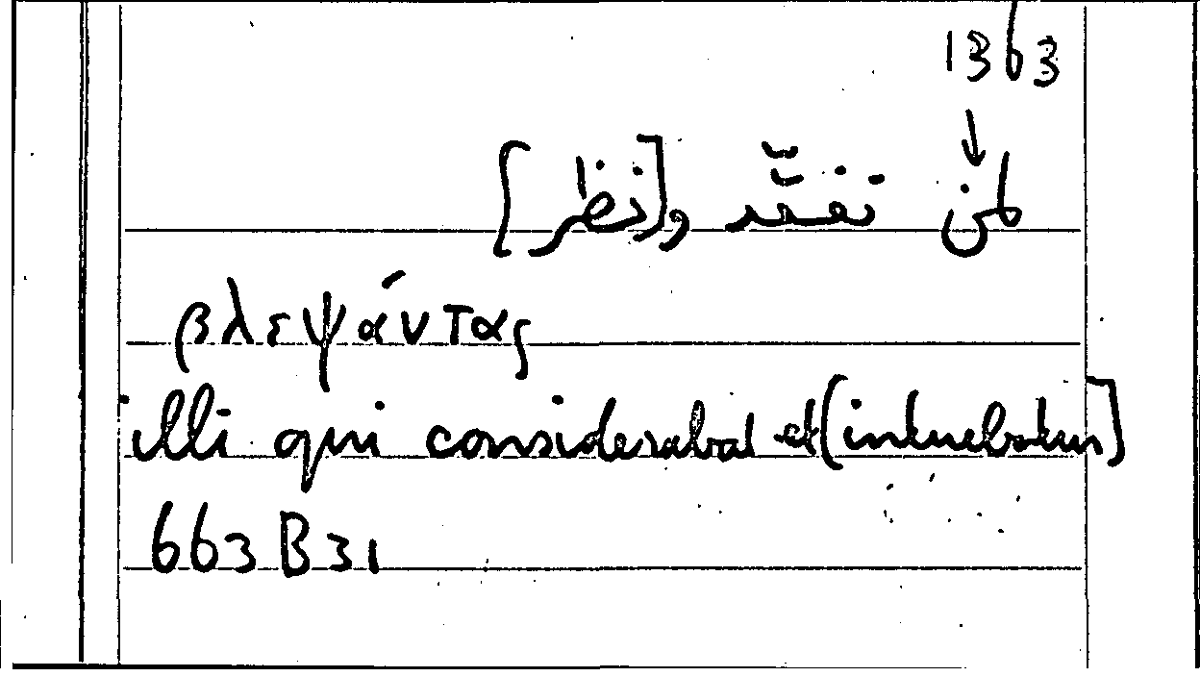 1363
↓
لمن تفقّد و[نظر]
βλεψάντας
illi qui considerabat et [intuebatur]
663 B 31